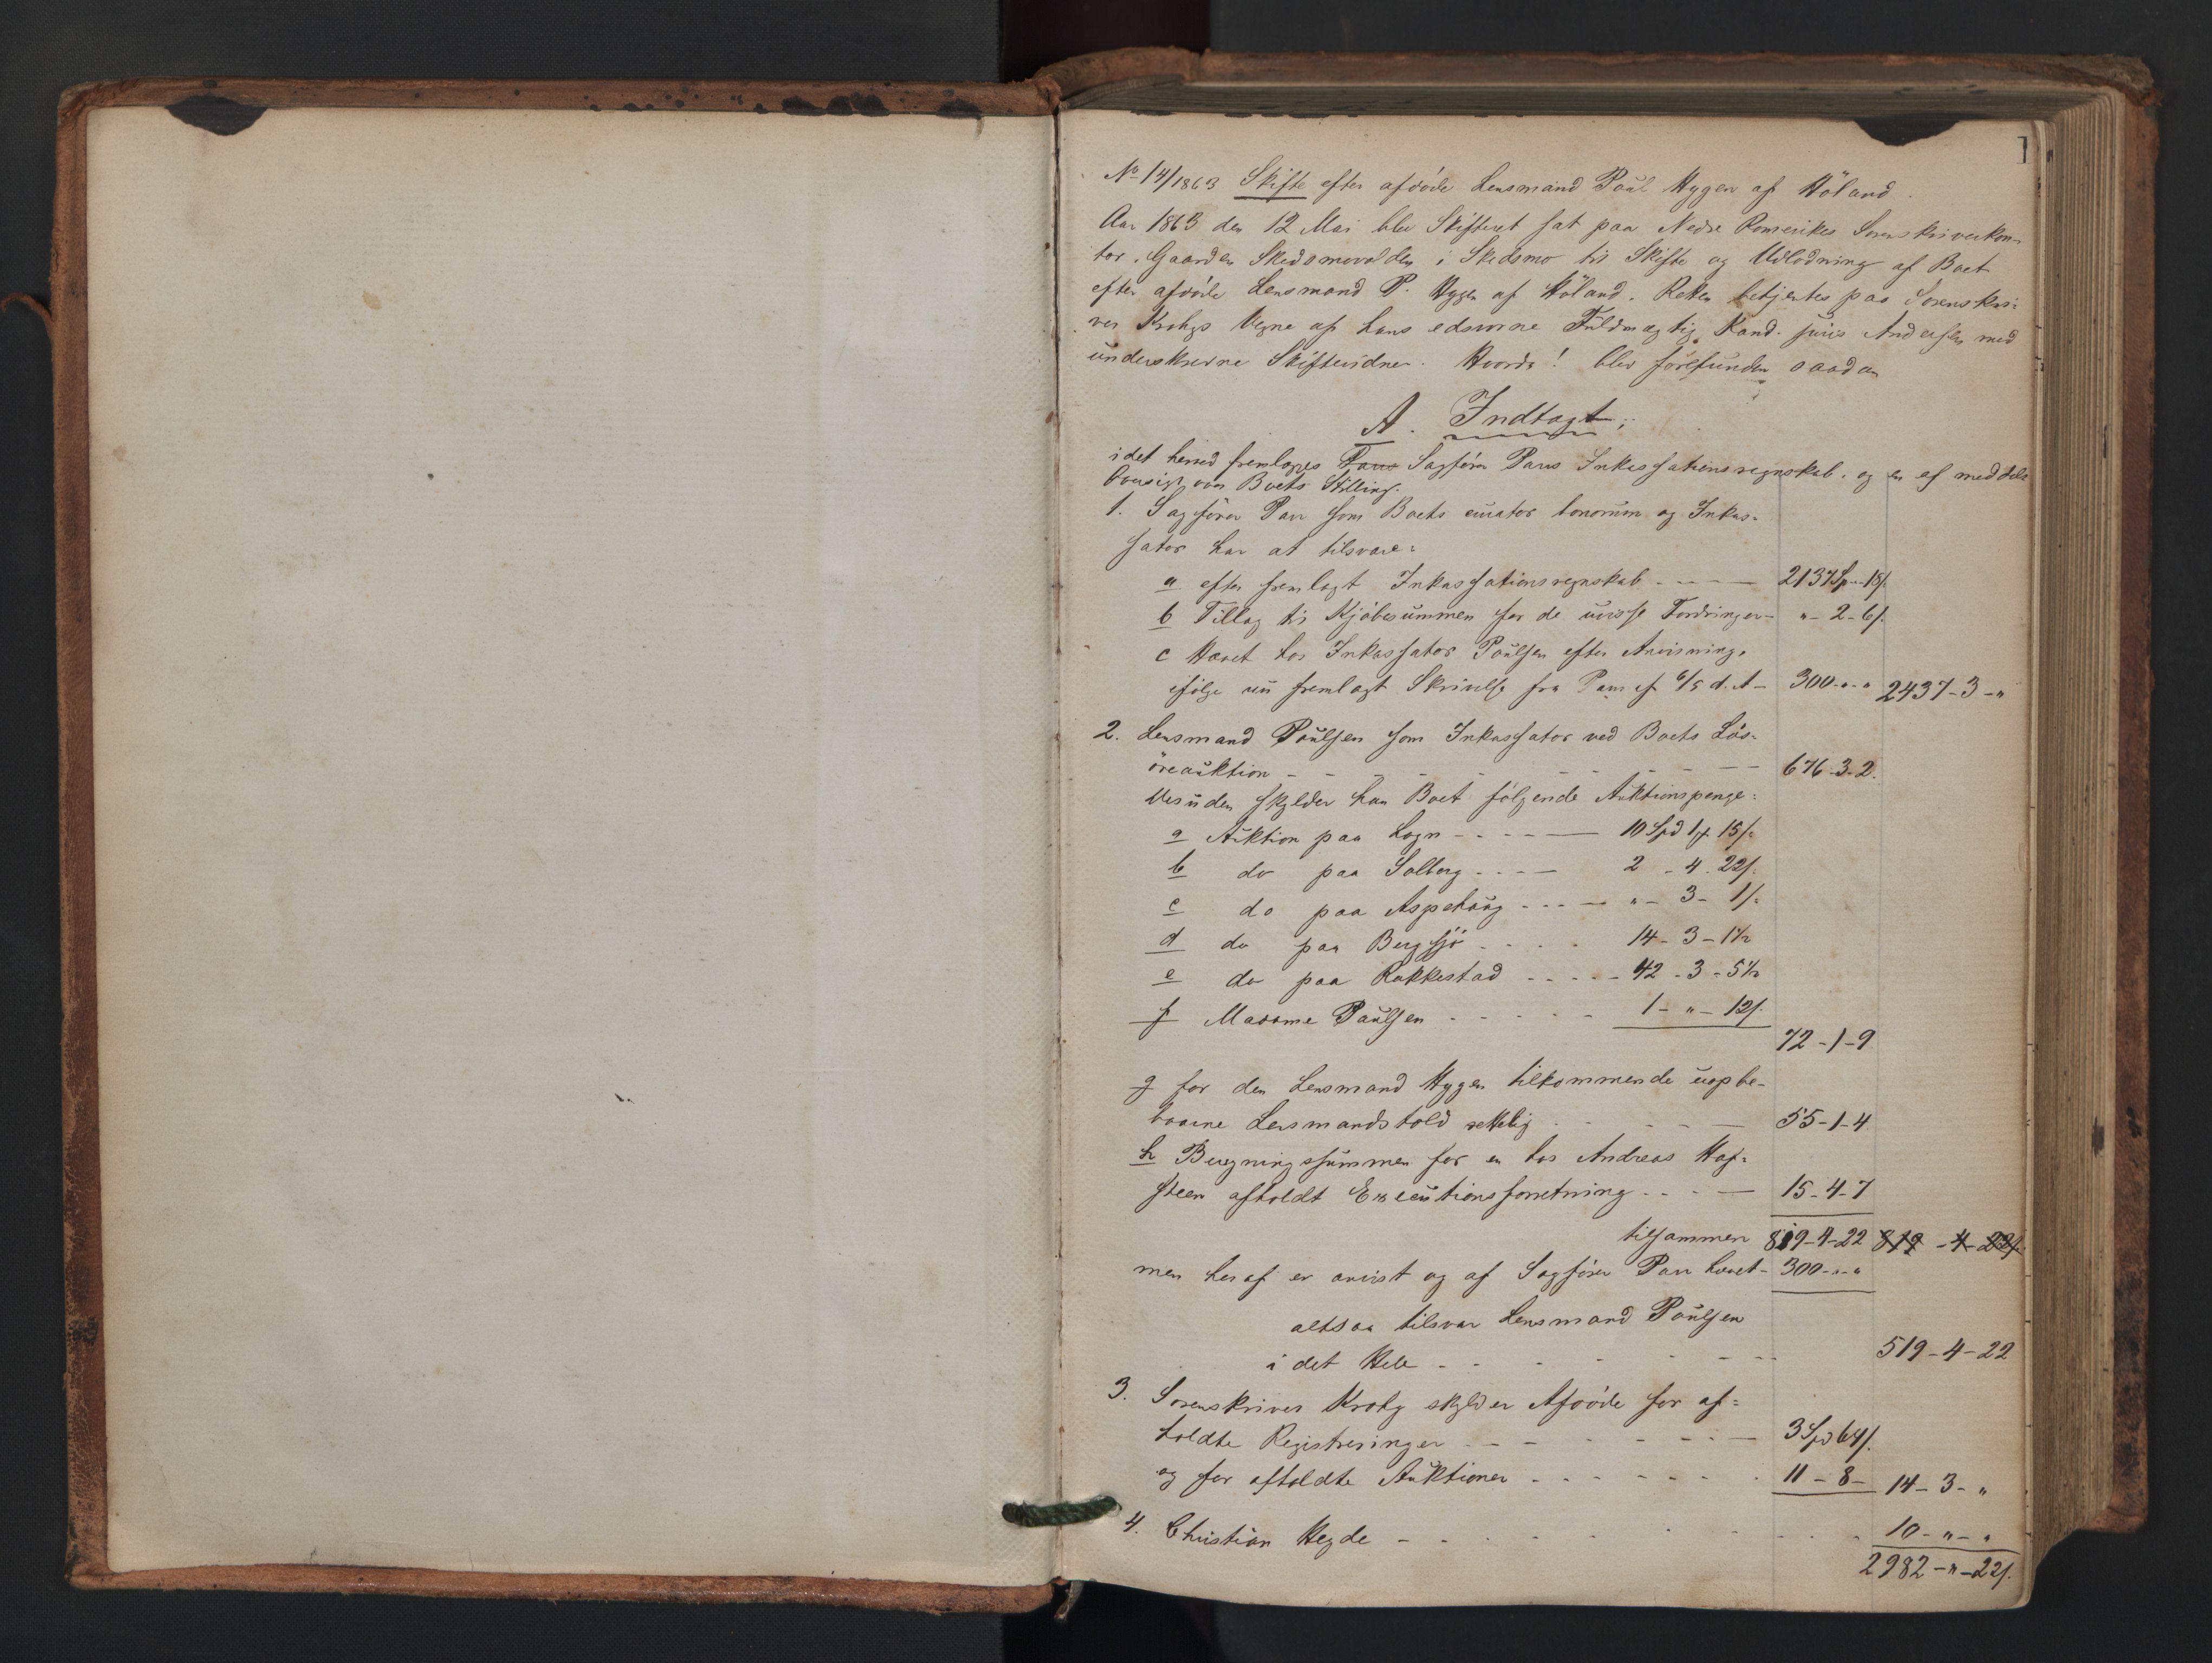 1
No 14/1863 Skifte efter afdöde Lensmand Paul Hygen af Höland.
Aar 1863 den 12 Mai blev Skifteret sat paa Nedre Romerikes Sorenskriverkon-
tor, Gaarden Skedsmovolden i Skedsmo til Skifte og Udlodning af Boet
efter afdöde Lensmand P. Hygen af Höland. Retten betjentes paa Sorenskri-
ver Krohgs Vegne af hans edsvorne Fuldmægtig, Kand. juris Andersen med
underskrevne Skiftevidner. Hvorda! blev forefunden saadan
A. Indtægt;
idet herved fremlagges Parrs Sagförer Parrs Inkassationsregnskab, og en af meddelt
Oversigt over Boets Stilling.
1. Sagförer Parr som Boets curator bonorum og Inkas-
sator har at tilsvare:
a efter fremlagt Inkassationsregnskab - - - 2137 Sp - - 18/.
b Tillæg til Kjöbesummen for de uvisse Fordringer - " - 2 - 6/.
c Hævet hos Inkassator Paulsen efter Anvisning,
ifölge nu fremlagt Skrivelse fra Parr af 6/5 d. A - 300 - " - " 2437 - 3 - "
2. Lensmand Paulsen som Inkassator ved Boets Lös-
öreauktion - - - - - 676 - 3 - 2.
Desuden skylder han Boet fölgende Auktionspenge:
a Auktion paa Logn - - - - 10 Spd 1 15/.
b do paa Solberg - - - - 2 - 4 . 22/.
c do paa Aspehaug - - - - " - 3 - 1/.
d do paa Bergsjö - - - - 14 - 3 - 1½
e do paa Rakkestad - - - - 42 - 3 - 5½
f Madame Paulsen - - - - 1 - " - 12/.
72 - 1 - 9
g for den Lensmand Hygen tilkommende uopbe-
baarne Lensmandstold - - - 55 - 1 - 4
h Bergningssummen for en hos Andreas Haf-
steen afholdt Executionsforretning - - - 15 - 4 - 7
tilsammen 819 - 4 - 22 819 - 4 - 22/.
men heraf er anvist og af Sagförer Parr hævet - 300 - " - "
altsaa tilsvar Lensmand Paulsen
i det Hele - - - - - 519 - 4 - 22
3. Sorenskriver Krohg skylder Afdöde for af-
holdte Registreringer - - - - - 3 Spd 64/.
og for afholdte Auktioner - - - - - 11 - 8 - 14 - 3 - "
4. Christian Hegde - - - - - 10 - " - "
2982 - " - 22/.